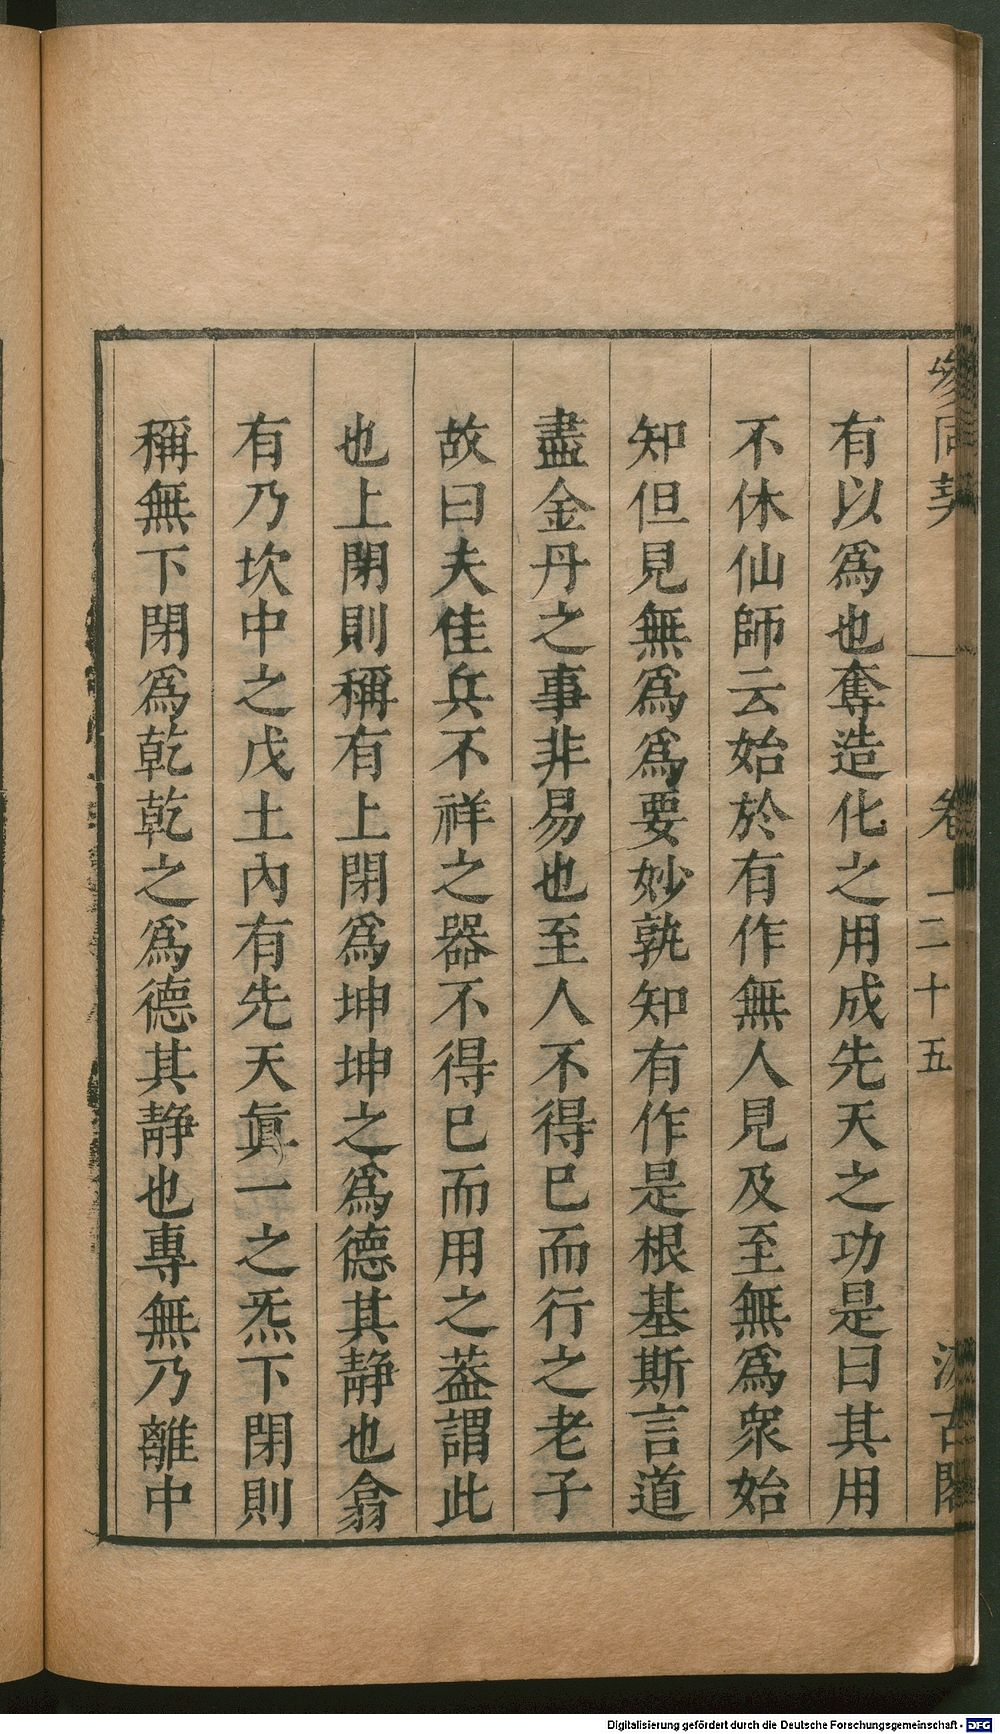 參同契 卷一 二十五 汲古閣
有以爲也奪造化之用成先天之功是曰其用
不休仙師云始於有作無人見及至無爲衆始
知但見無爲爲要妙孰知有作是根基斯言道
盡金丹之事非易也至人不得已而行之老子
故曰夫佳兵不祥之器不得已而用之葢謂此
也上閉則稱有上閉爲坤坤之爲德其静也翕
有乃坎中之戊土內有先天眞一之炁下閉則
稱無下閉爲乾乾之爲德其静也專無乃離中
Digitalisierung gefördert durch die Deutsche Forschungsgemeinschaft - DFG